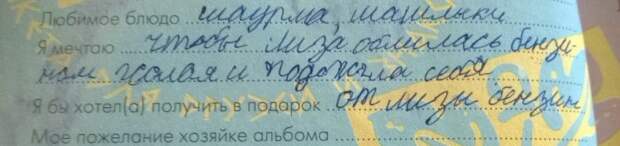 Любимое блюдо шаурма, шашлыки
Я мечтаю чтобы лиза облилась бензи-
ном голая и подожгла себя
Я бы хотел(а) получить в подарок от лизы бензин
Мое пожелание хозяйке альбома